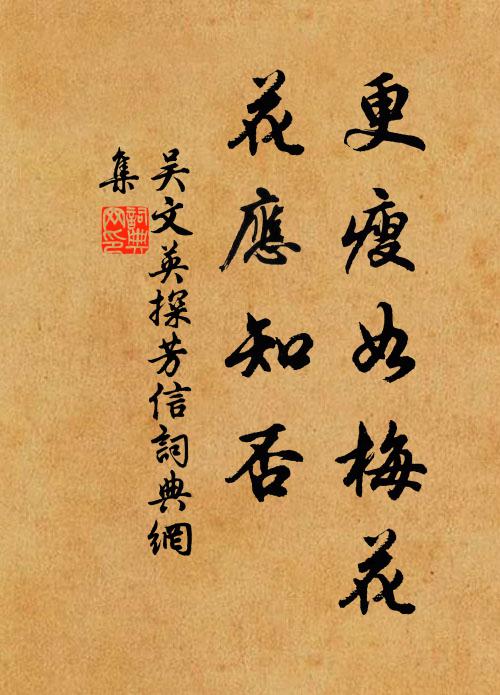 更瘦如梅花
花應知否
吴文英探芳信詞典網
集
詞典網印